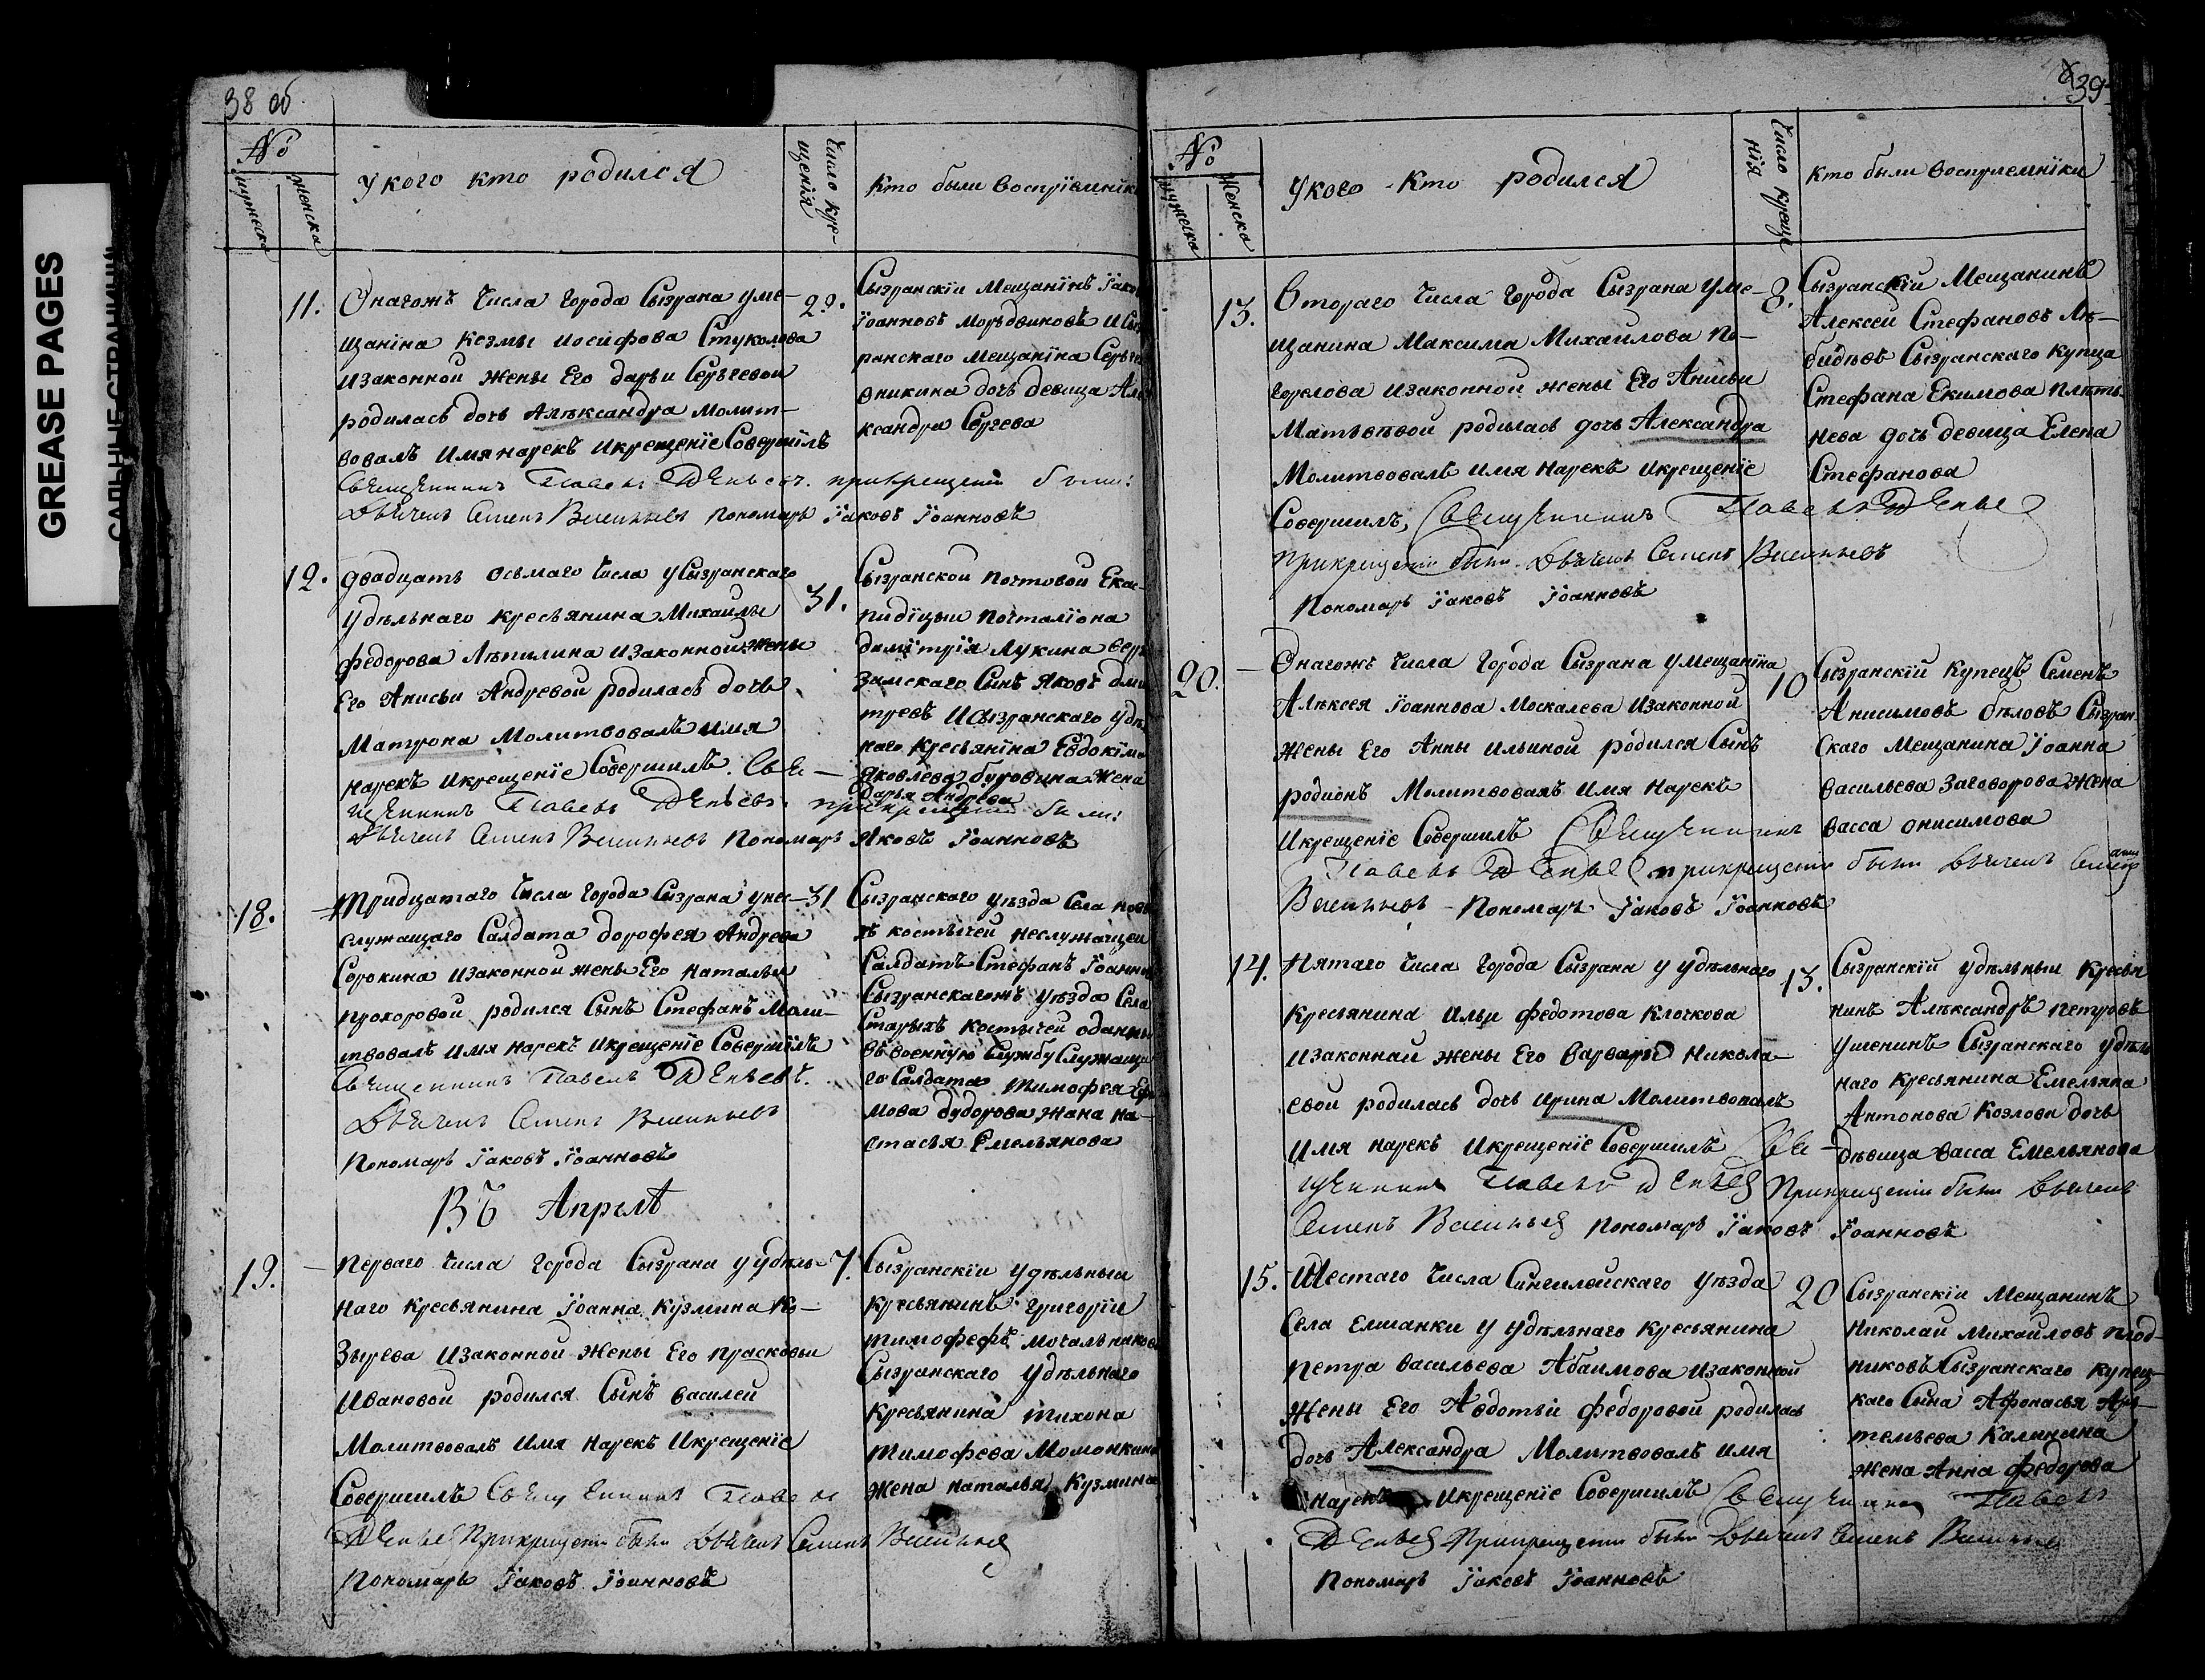 GREASE PAGES
САЛЬНЫЕ СТРАНИЦЫ
38 об
№
мужеска
женска
У кого кто родился
Число кре-
щенія
Кто были воспріемник
11.
Онагожъ числа города Сызрана уме-
щаніна Козмы Иосифова Стуколова
изаконной жены Его дарьи Сергеевой
родиласъ дочь Алѣксандра молит-
вовалъ имя нарекъ икрещеніе Совершілъ
Священникъ Павелъ прикрещеніи были:
дьячекъ Семенъ Васильевъ пономарь Іаковъ Іоанновъ
29.
Сызранскіи Мещанінъ Іако
Іоанновъ Мордвиновъ и Сыз
ранскаго Мещаніна Сергѣ
Аникина дочь девица Але
ксандра Сергеева
12.
двадцать осьмаго числа уСызранскаго
удѣльнаго кресьянина Михаилы
федорова Лѣпилина изаконной жены
Его Анисьи Андревой родиласъ дочь
Матрона Молитвовалъ имя
нарекъ икрещеніе Совершилъ. Свя-
щенникъ Павелъ прикрещеніи были:
дьячекъ Семенъ Васильевъ пономарь Яковъ Іоанновъ
31.
Сызранской почтовой Екс-
пидіцыи почталіона
димітрія Лукина
замскаго Сынъ Яковъ дми
тревъ и Сызранскаго удѣ
наго кресьяніна Евдокіма
Яковлева буровина жена
дарья Андрева
18.
Тридцатаго числа города Сызрана уне-
служащаго Салдата дорофея Андрева
Сорокина изаконной жены Его Натальи
прохоровой родился Сынъ Стефанъ Моли-
твовалъ имя нарекъ икрещеніе Совершілъ
Священникъ Павелъ
дьячекъ Семенъ Васильевъ
Пономарь Іаковъ Іоанновъ
31
Сызранскаго уезда Села новы
хъ костычей неслужащей
Салдатъ Стефанъ Іоанно
Сызранскагожъ уѣзда Села
Старыхъ костычей оданны
въ военную службу Служащ
го Салдата тимофея
мова будорова жана на-
стасья Емельянова
Въ Апрелѣ
19.
Перваго числа города Сызрана у удѣль-
наго кресьянина Іоанна Кузмина Ко-
зырева изаконной жены Его прасковьи
Ивановой родился Сынъ василей
Молитвовалъ имя нарекъ икрещеніе
Совершилъ Священникъ Павелъ
прикрещеніи были дьячекъ Семенъ Васильев
Пономарь Іаковъ Іоанновъ
7.
Сызранскіи удѣльныи
кресьянинъ григоріи
тимофефъ мочальников
Сызранскаго удѣльнаго
кресьянина тихона
тимофева Момонкина
жена наталья Кузмина
39
№
мужеска
женска
У кого кто родился
Число креще
нія
кто были воспріемніки
13.
Втораго числа города Сызрана уме-
щанина Максима Михаилова по-
горелова изаконной жены Его Анисьи
Матвѣвой родилась дочь Александра
Молитвовалъ имя нарекъ икрещеніе
Совершилъ, Священникъ Павелъ
прикрещеніи были дьячекъ Семенъ Васильевъ
Пономарь Іаковъ Іоанновъ
8.
Сызранскіи Мещанинъ
Алексеи Стефановъ Лѣ-
бидѣвъ Сызранскаго купца
Стефана Екимова Плѣть-
нева дочь девица Елена
Стефанова
20.
Онагожъ числа города Сызрана умещаніна
Алѣксея Іоаннова Москалева изаконной
жены Его Анны Ильиной родился Сынъ
родионъ Молитвовалъ имя нарекъ
икрещеніе Совершилъ Священникъ
Павелъ прикрещеніи были дьячекъ Семенъ
Васильевъ - Пономарь Іаковъ Іоанновъ
10
Сызранскій купецъ Семенъ
Анисимовъ бѣловъ Сызран-
скаго Мещанина Іоанна
васильева Заговорова жена
васса онисимова
14.
Пятаго числа города Сызрана у удѣльнаго
кресьянина Ильи федотова Клочкова
изаконнай жены Его варвары никола-
евой родилась дочь ирина Молитвовалъ
имя нарекъ икрещеніе Совершилъ Свя-
щенникъ Павелъ Прикрещеніи были дьячекъ
Семенъ Васильев Пономарь Іаковъ Іоанновъ
13.
Сызранскій удѣльный кресья
нинъ Алѣксандръ петровъ
ушенинъ Сызранскаго удѣль
наго кресьянина Емельяна
Антонова Козлова дочь
дѣвица васса Емельянова
15.
Шестаго числа Сингилейскаго уезда
Села елшанки у удѣльнаго кресьянина
петра васильева Абаимова изаконной
жены Его Авдотьи федоровой родилась
дочь Александра Молитвовалъ имя
нарекъ икрещеніе Совершилъ Священникъ Павелъ
Прикрещеніи были дьячекъ Семенъ Васильев
Пономарь Іаковъ Іоанновъ
20
Сызранскіи Мещанинъ
николай михайловъ плод-
никовъ Сызранскаго купец-
каго Сына Афонасья Ар-
темьева Калинина
жена Анна федорова